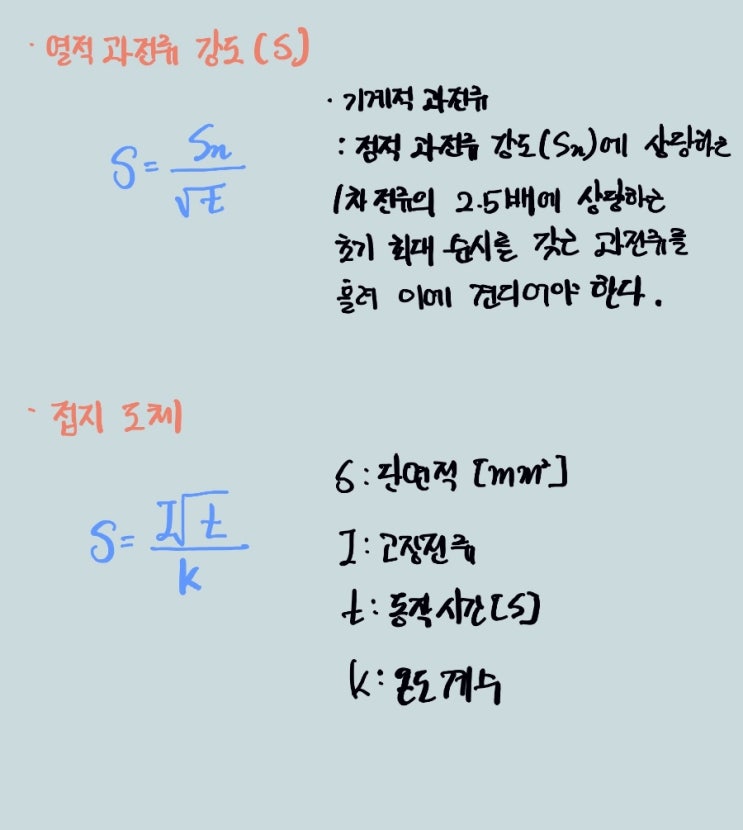 · 열적 과전류 강도 (S)
S = Sn / √t
· 기계적 과전류
: 정적 과전류 강도(Sn)에 상당하는
1차 전류의 2.5배에 상당하는
초기 최대 순시를 갖는 과전류를
흘려 이에 견디어야 한다.
· 접지 도체
S = I√t / k
S : 단면적 [mm²]
I : 고장전류
t : 동작시간[S]
k : 온도계수